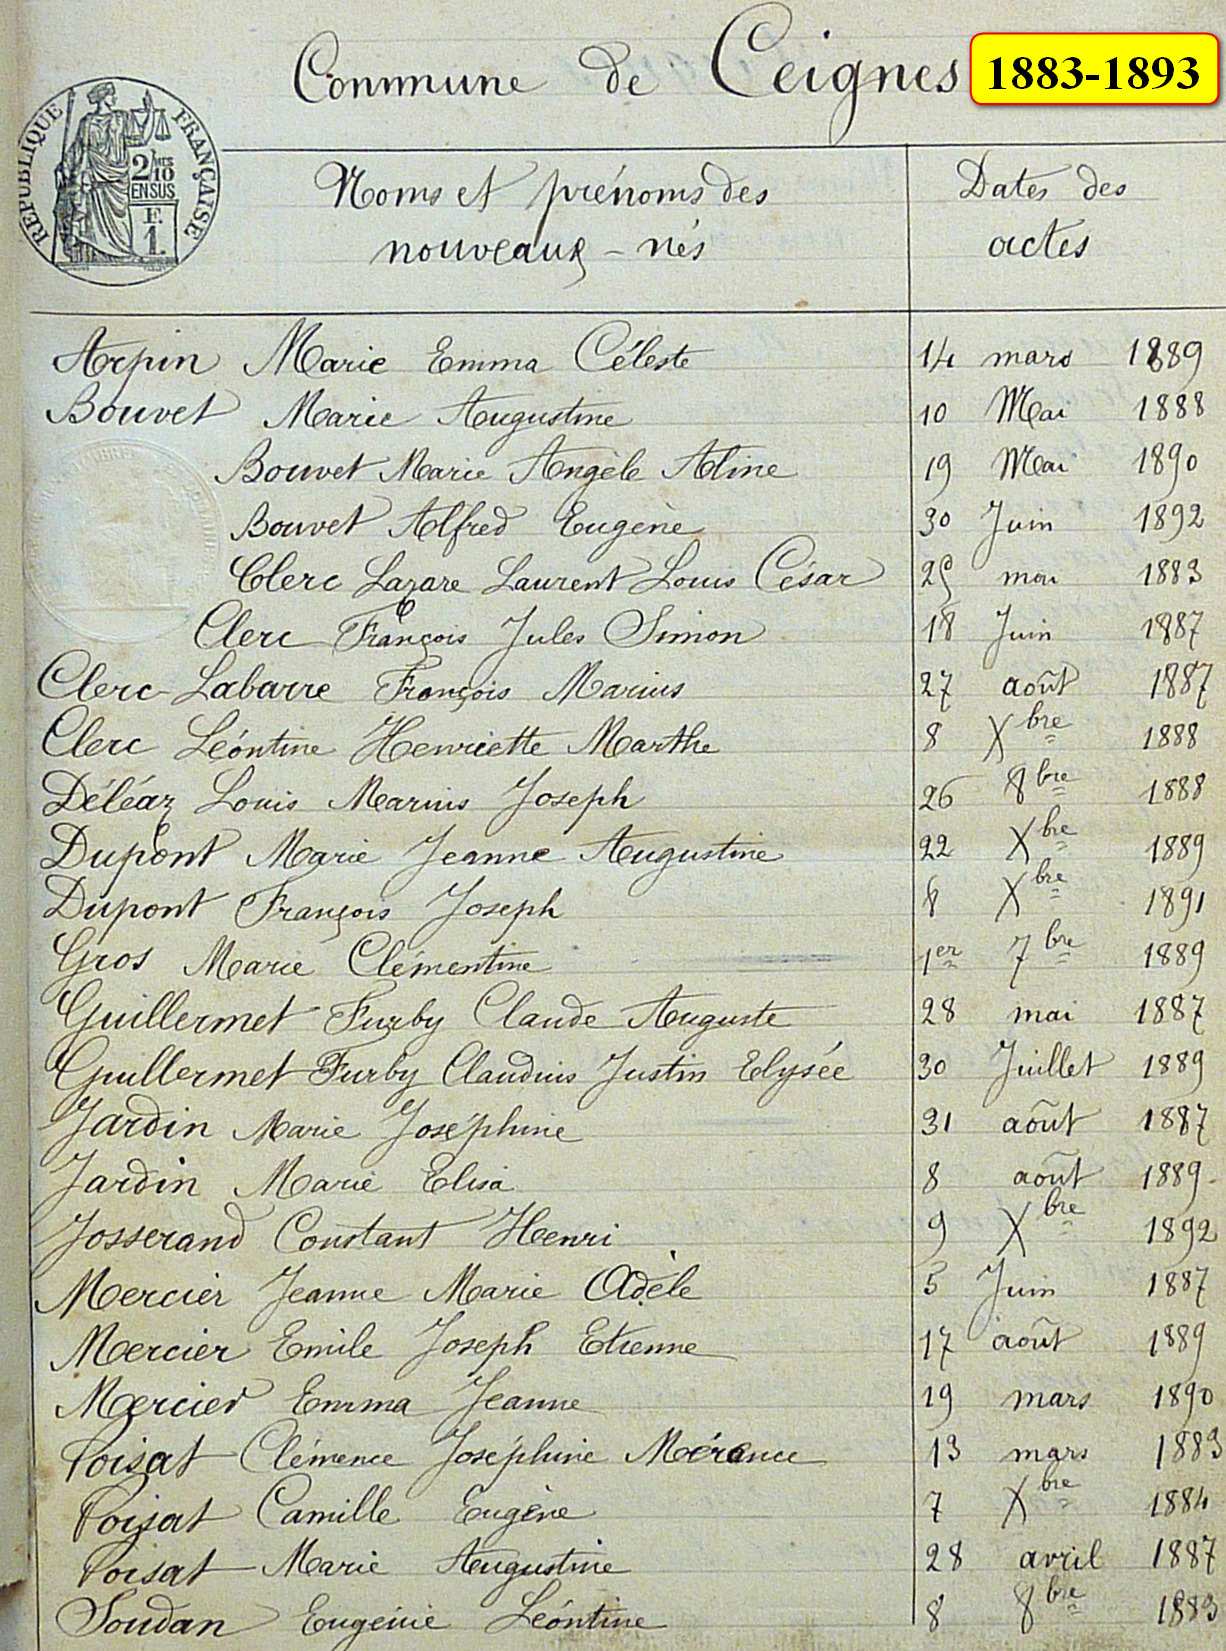 Commune de Ceignes
1883-1893
RÉPUBLIQUE FRANÇAISE
2/10
EN SUS
F.
1.
Noms et prénoms des
nouveaux-nés
Dates des
actes
Arpin Marie Emma Céleste 14 mars 1889
Bouvet Marie Augustine 10 Mai 1888
Bouvet Marie Angèle Aline 19 Mai 1890
Bouvet Alfred Eugène 30 Juin 1892
Clerc Lazare Laurent Louis César 25 mai 1883
Clerc François Jules Simon 18 Juin 1887
Clerc-Labarre François Marius 27 août 1887
Clerc Léontine Henriette Marthe 8 Xbre 1888
Déléaz Louis Marius Joseph 26 8bre 1888
Dupont Marie Jeanne Augustine 22 Xbre 1889
Dupont François Joseph 8 Xbre 1891
Gros Marie Clémentine 1er 7bre 1889
Guillermet Furby Claude Auguste 28 mai 1887
Guillermet Furby Claudius Justin Elysée 30 Juillet 1889
Jardin Marie Joséphine 31 août 1887
Jardin Marie Elisa 8 août 1889
Josserand Constant Henri 9 Xbre 1892
Mercier Jeanne Marie Adèle 5 Juin 1887
Mercier Emile Joseph Etienne 17 août 1889
Mercier Emma Jeanne 19 mars 1890
Poisat Clémence Joséphine Mérance 13 mars 1883
Poisat Camille Eugène 7 Xbre 1884
Poisat Marie Augustine 28 avril 1887
Soudan Eugénie Léontine 8 8bre 1883